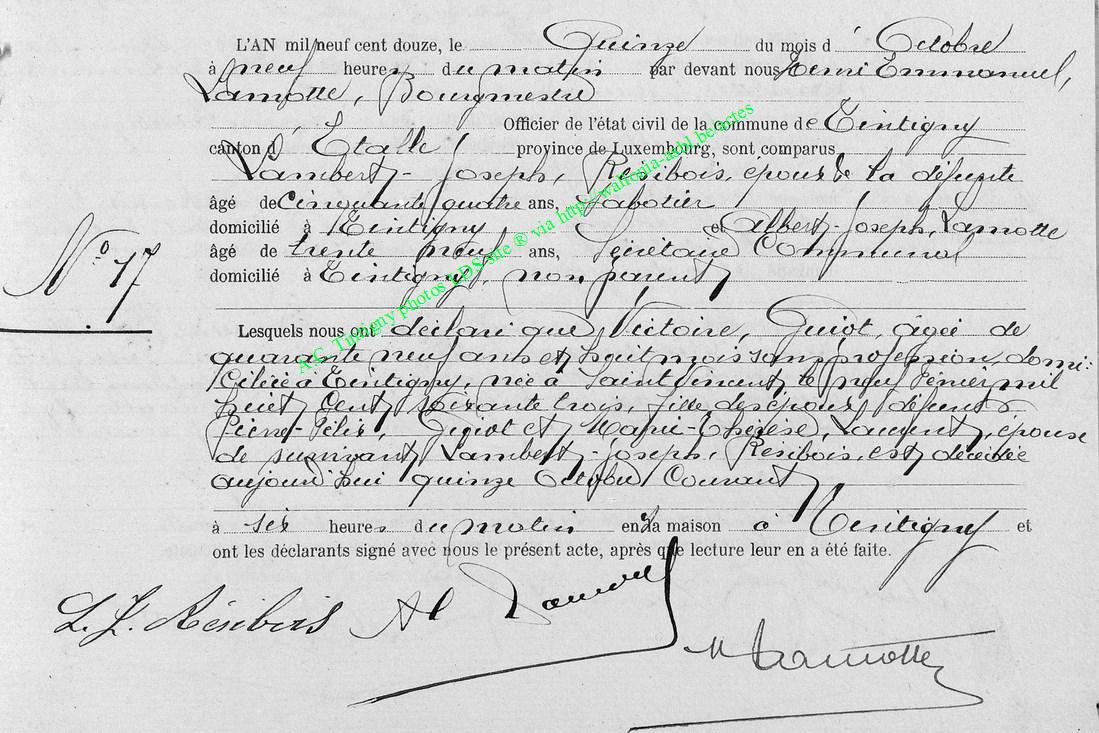 L'AN mil neuf cent douze, le Quinze du mois d' Octobre
à neuf heures du matin par devant nous Henri Emmanuel,
Lamotte, Bourgmestre
Officier de l'état civil de la commune de Tintigny
canton d' Etalle province de Luxembourg, sont comparus
Lambert-Joseph, Résibois, époux de la défunte
âgé de Cinquante quatre ans, Sabotier
domicilié à Tintigny et Albert-Joseph, Lamotte
âgé de trente neuf ans, Secrétaire Communal
domicilié à Tintigny, non parent
N° 17
Lesquels nous ont déclaré que Victoire, Guiot, âgée de
quarante neuf ans et huit mois sans profession, domi-
ciliée à Tintigny, née à Saint Vincent le neuf Février mil
huit cent soixante trois, fille des époux défunts
Pierre-Félix, Guiot et Marie-Thérèse, Laurent, épouse
de survivant Lambert-Joseph, Résibois, est décédée
aujourd'hui quinze Octobre Courant
à six heures du matin en sa maison à Tintigny et
ont les déclarants signé avec nous le présent acte, après que lecture leur en a été faite.
L. J. Résibois Al Lamotte
H Lamotte
A.G. Tintigny photos LDS site ® via http://wallonia-asbl.be/actes